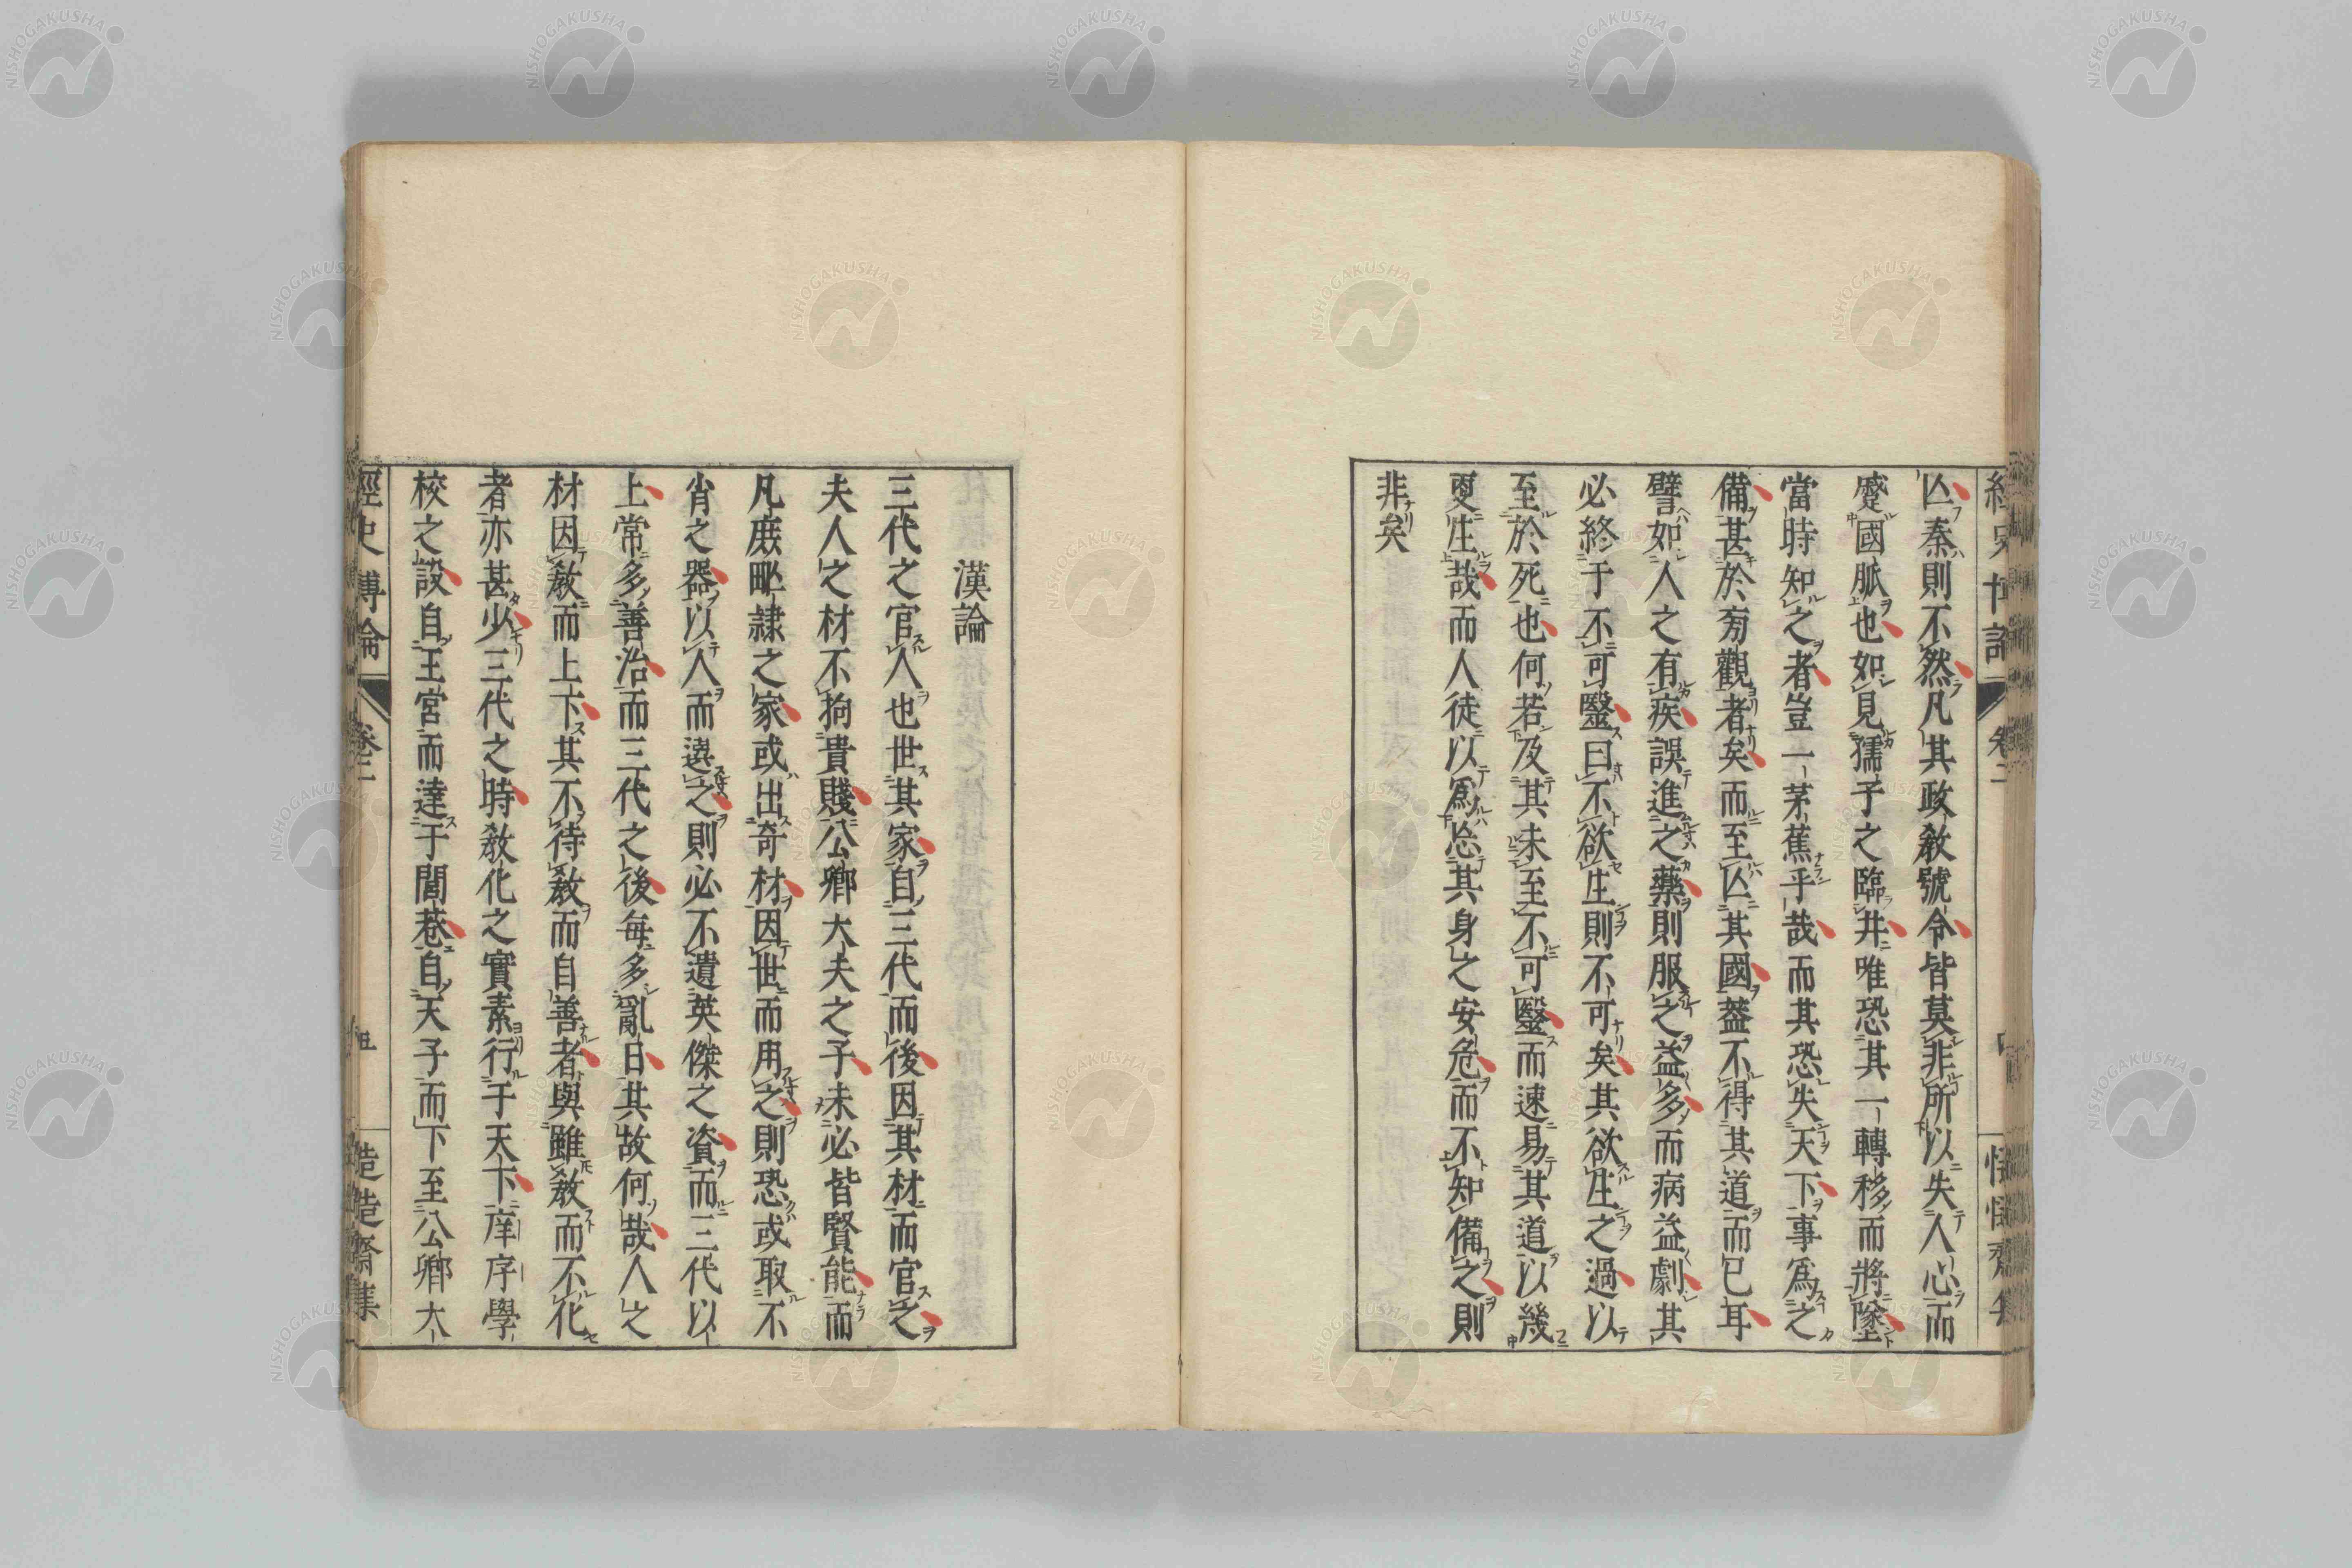 亾秦則不然凡其政敎號令皆莫非所以失人心而
蹙國脈也如見孺子之臨井唯恐其一轉移而將墜
當時知之者豈一茅蕉乎哉而其恐失天下事爲之
備甚於旁觀者矣而至亾其國葢不得其道而已耳
譬如人之有疾誤進之藥則服之益多而病益劇其
必終于不可毉曰不欲生則不可矣其欲生之過以
至於死也何若及其未至不可毉而速易其道以幾
更生哉而人徒以爲忘其身之安危而不知備之則
非矣
漢論
三代之官人也世其家自三代而後因其材而官之
夫人之材不拘貴賤公卿大夫之子未必皆賢能而
凡庶甿隷之家或出奇材因世而用之則恐或取不
肖之器以人而選之則必不遺英傑之資而三代以
上常多善治而三代之後每多亂日其故何哉人之
材因敎而上下其不待敎而自善者與雖敎而不化
者亦甚少三代之時敎化之實素行于天下庠序學
校之設自王宮而達于閭巷自天子而下至公卿大
經史博論
卷二
五
NISHOGAKUSHA